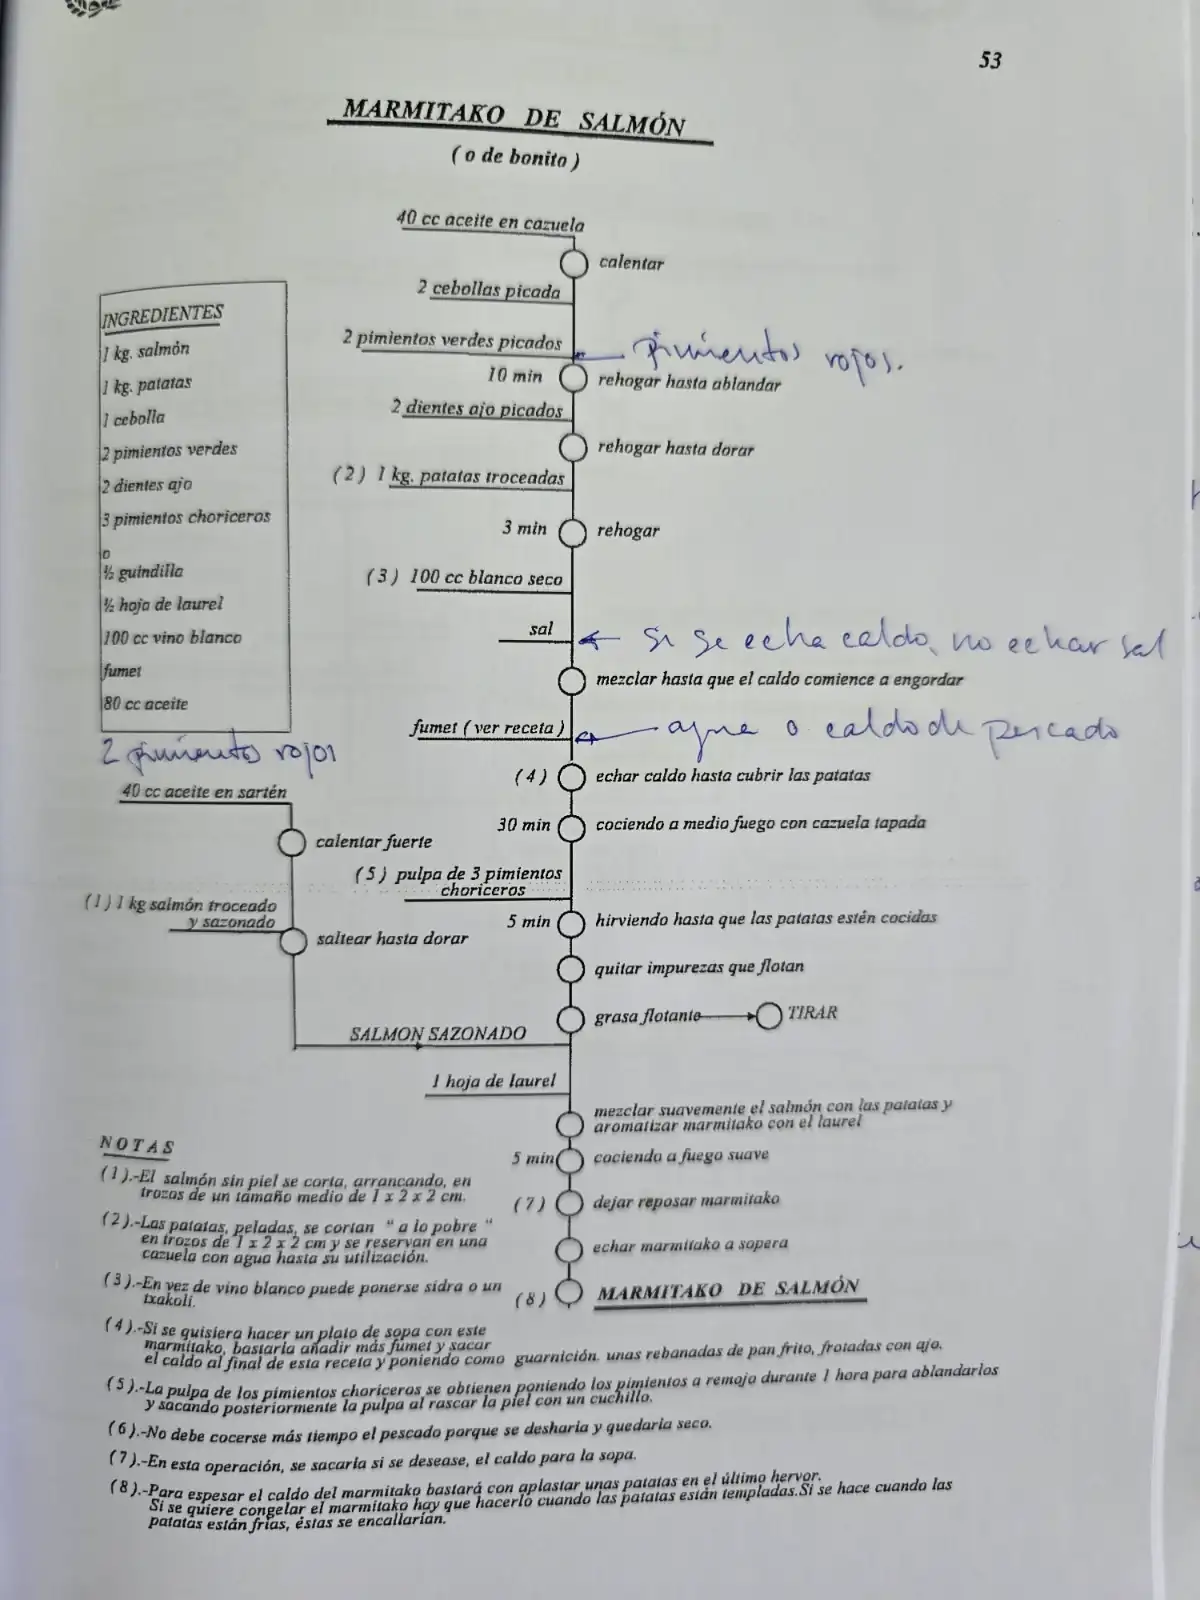 53
MARMITAKO DE SALMÓN
( o de bonito )
40 cc aceite en cazuela
calentar
2 cebollas picada
2 pimientos verdes picados
pimientos rojos.
10 min
rehogar hasta ablandar
2 dientes ajo picados
rehogar hasta dorar
( 2 ) 1 kg. patatas troceadas
3 min
rehogar
( 3 ) 100 cc blanco seco
sal
si se echa caldo, no echar sal
mezclar hasta que el caldo comience a engordar
fumet ( ver receta )
agua o caldo de pescado
( 4 )
echar caldo hasta cubrir las patatas
30 min
cociendo a medio fuego con cazuela tapada
( 5 ) pulpa de 3 pimientos
choriceros
5 min
hirviendo hasta que las patatas estén cocidas
quitar impurezas que flotan
grasa flotante
TIRAR
INGREDIENTES
1 kg. salmón
1 kg. patatas
1 cebolla
2 pimientos verdes
2 dientes ajo
3 pimientos choriceros
o
½ guindilla
½ hoja de laurel
100 cc vino blanco
fumet
80 cc aceite
2 pimientos rojos
40 cc aceite en sartén
calentar fuerte
( 1 ) 1 kg salmón troceado
y sazonado
saltear hasta dorar
SALMON SAZONADO
1 hoja de laurel
mezclar suavemente el salmón con las patatas y
aromatizar marmitako con el laurel
5 min
cociendo a fuego suave
( 7 )
dejar reposar marmitako
echar marmitako a sopera
( 8 )
MARMITAKO DE SALMÓN
NOTAS
( 1 ).-El salmón sin piel se corta, arrancando, en
trozos de un tamaño medio de 1 x 2 x 2 cm.
( 2 ).-Las patatas, peladas, se cortan " a lo pobre "
en trozos de 1 x 2 x 2 cm y se reservan en una
cazuela con agua hasta su utilización.
( 3 ).-En vez de vino blanco puede ponerse sidra o un
txakoli.
( 4 ).-Si se quisiera hacer un plato de sopa con este
marmitako, bastaria añadir más fumet y sacar
el caldo al final de esta receta y poniendo como guarnición. unas rebanadas de pan frito, frotadas con ajo.
( 5 ).-La pulpa de los pimientos choriceros se obtienen poniendo los pimientos a remojo durante 1 hora para ablandarlos
y sacando posteriormente la pulpa al rascar la piel con un cuchillo.
( 6 ).-No debe cocerse más tiempo el pescado porque se desharia y quedaria seco.
( 7 ).-En esta operación, se sacaria si se desease, el caldo para la sopa.
( 8 ).-Para espesar el caldo del marmitako bastará con aplastar unas patatas en el último hervor.
Si se quiere congelar el marmitako hay que hacerlo cuando las patatas están templadas.Si se hace cuando las
patatas están frias, éstas se encallarian.